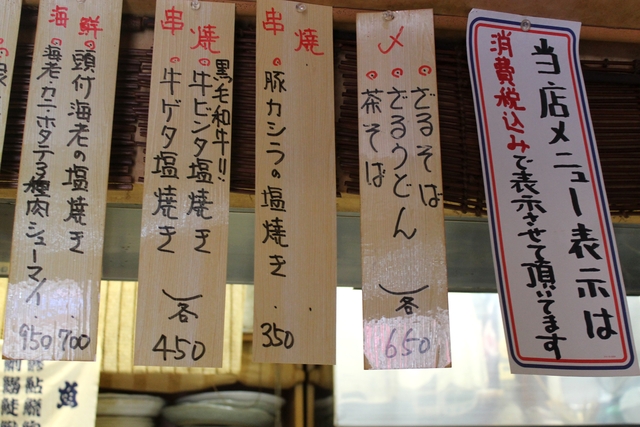 当店メニュー表示は
消費税込みで表示させて頂いてます
〆
ざるそば
ざるうどん
茶そば
各
650
焼串
豚カシラの塩焼き
350
焼串
黒毛和牛!!
牛ビンタ塩焼き
牛ゲタ塩焼き
各
450
鮮海
頭付海老の塩焼き
700
海老・カニ・ホタテ3種肉シューマイ
950